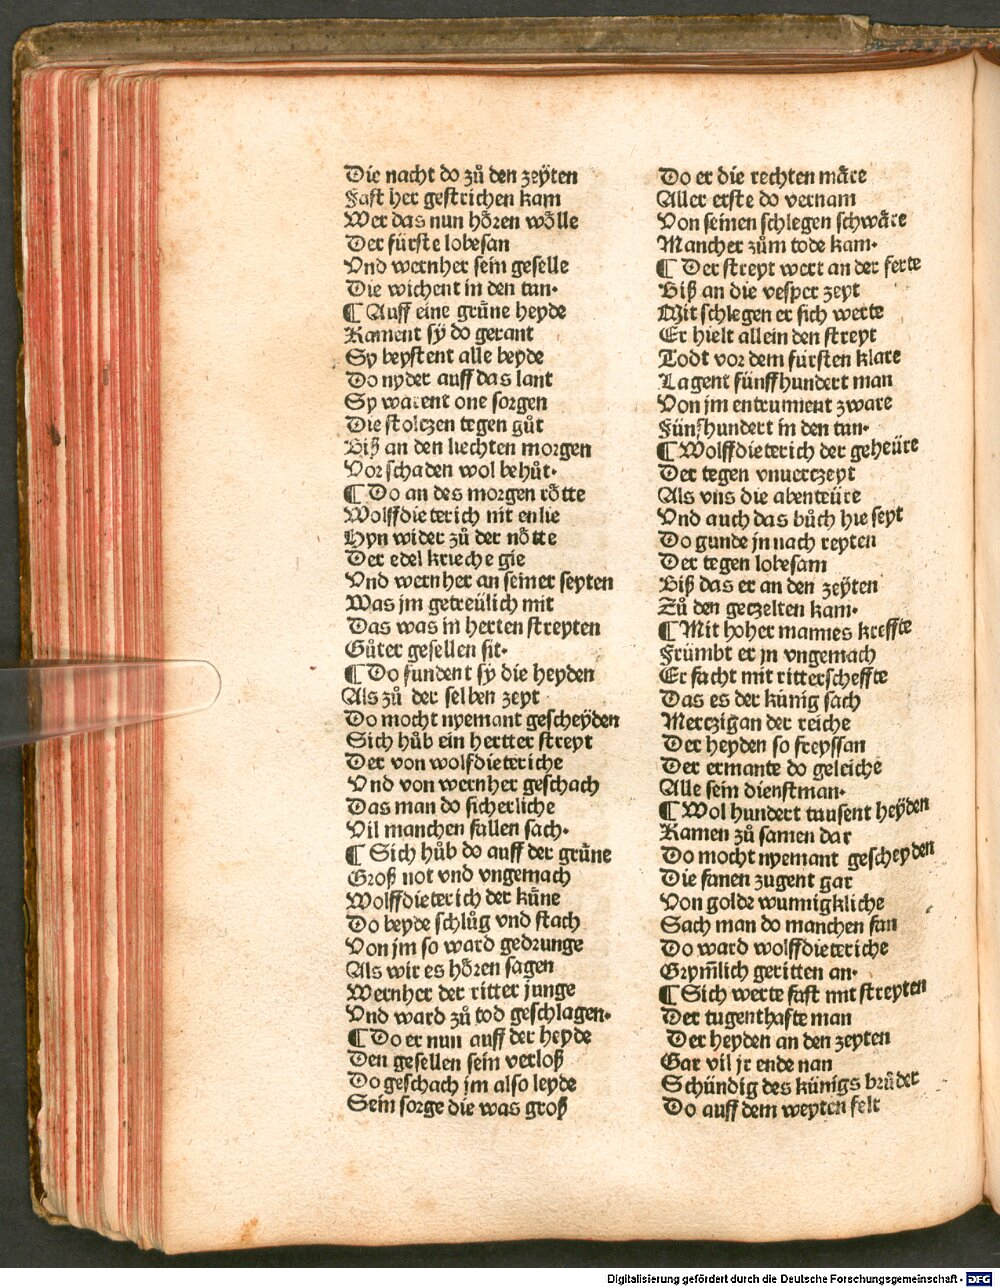 Die nacht do zuͦ den zeÿten
Fast her gestrichen kam
Wer das nun hoͤren woͤlle
Der fürste lobesan
Vnd wernher sein geselle
Die wichent in den tan.
¶ Auff eine gruͤne heyde
Kament sÿ do gerant
Sy beystent alle beyde
Do nyder auff das lant
Sy warent one sorgen
Die stolczen tegen guͦt
Biß an den liechten morgen
Vor schaden wol behuͦt.
¶ Do an des morgen roͤtte
Wolffdieterich nit enlie
Hyn wider zuͦ der noͤtte
Der edel krieche gie
Vnd wernher an seiner seyten
Was jm getreülich mit
Das was in herten streyten
Guͦter gesellen sit.
¶ Do fundent sÿ die heyden
Als zuͦ der selben zeyt
Do mocht nyemant gescheÿden
Sich huͦb ein hertter streyt
Der von wolfdieteriche
Vnd von wernher geschach
Das man do sicherliche
Vil manchen fallen sach.
¶ Sich huͦb do auff der gruͤne
Groß not vnd vngemach
Wolffdieterich der kuͤne
Do beyde schluͦg vnd stach
Von jm so ward gedrunge
Als wir es hoͤren sagen
Wernher der ritter junge
Vnd ward zuͦ tod geschlagen.
¶ Do er nun auff der heyde
Den gesellen sein verloß
Do geschach jm also leyde
Sein sorge die was groß
Do er die rechten maͤre
Aller erste do vernam
Von seinen schlegen schwaͤre
Mancher zuͦm tode kam.
¶ Der streyt wert an der ferte
Biß an die vesper zeyt
Mit schlegen er sich werte
Er hielt allein den streyt
Todt vor dem fürsten klare
Lagent fünffhundert man
Von jm entrunnent zware
Fünfhundert in den tan.
¶ Wolffdieterich der geheüre
Der tegen vnuerczeyt
Als vns die abenteüre
Vnd auch das buͦch hie seyt
Do gunde jn nach reyten
Der tegen lobesam
Biß das er an den zeÿten
Zuͦ den geczelten kam.
¶ Mit hoher mannes kreffte
Frümbt er jn vngemach
Er facht mit ritterscheffte
Das es der künig sach
Merczigan der reiche
Der heyden so freyssan
Der ermante do geleiche
Alle sein dienstman.
¶ Wol hundert tausent heÿden
Kamen zuͦ samen dar
Do mocht nyemant gescheyden
Die fanen zugent gar
Von golde wunnigkliche
Sach man do manchen fan
Do ward wolffdieteriche
Grym̄lich geritten an.
¶ Sich werte fast mit streyten
Der tugenthafte man
Der heyden an den zeyten
Gar vil jr ende nan
Schündig des künigs bruͦder
Do auff dem weyten felt
Digitalisierung gefördert durch die Deutsche Forschungsgemeinschaft - DFG